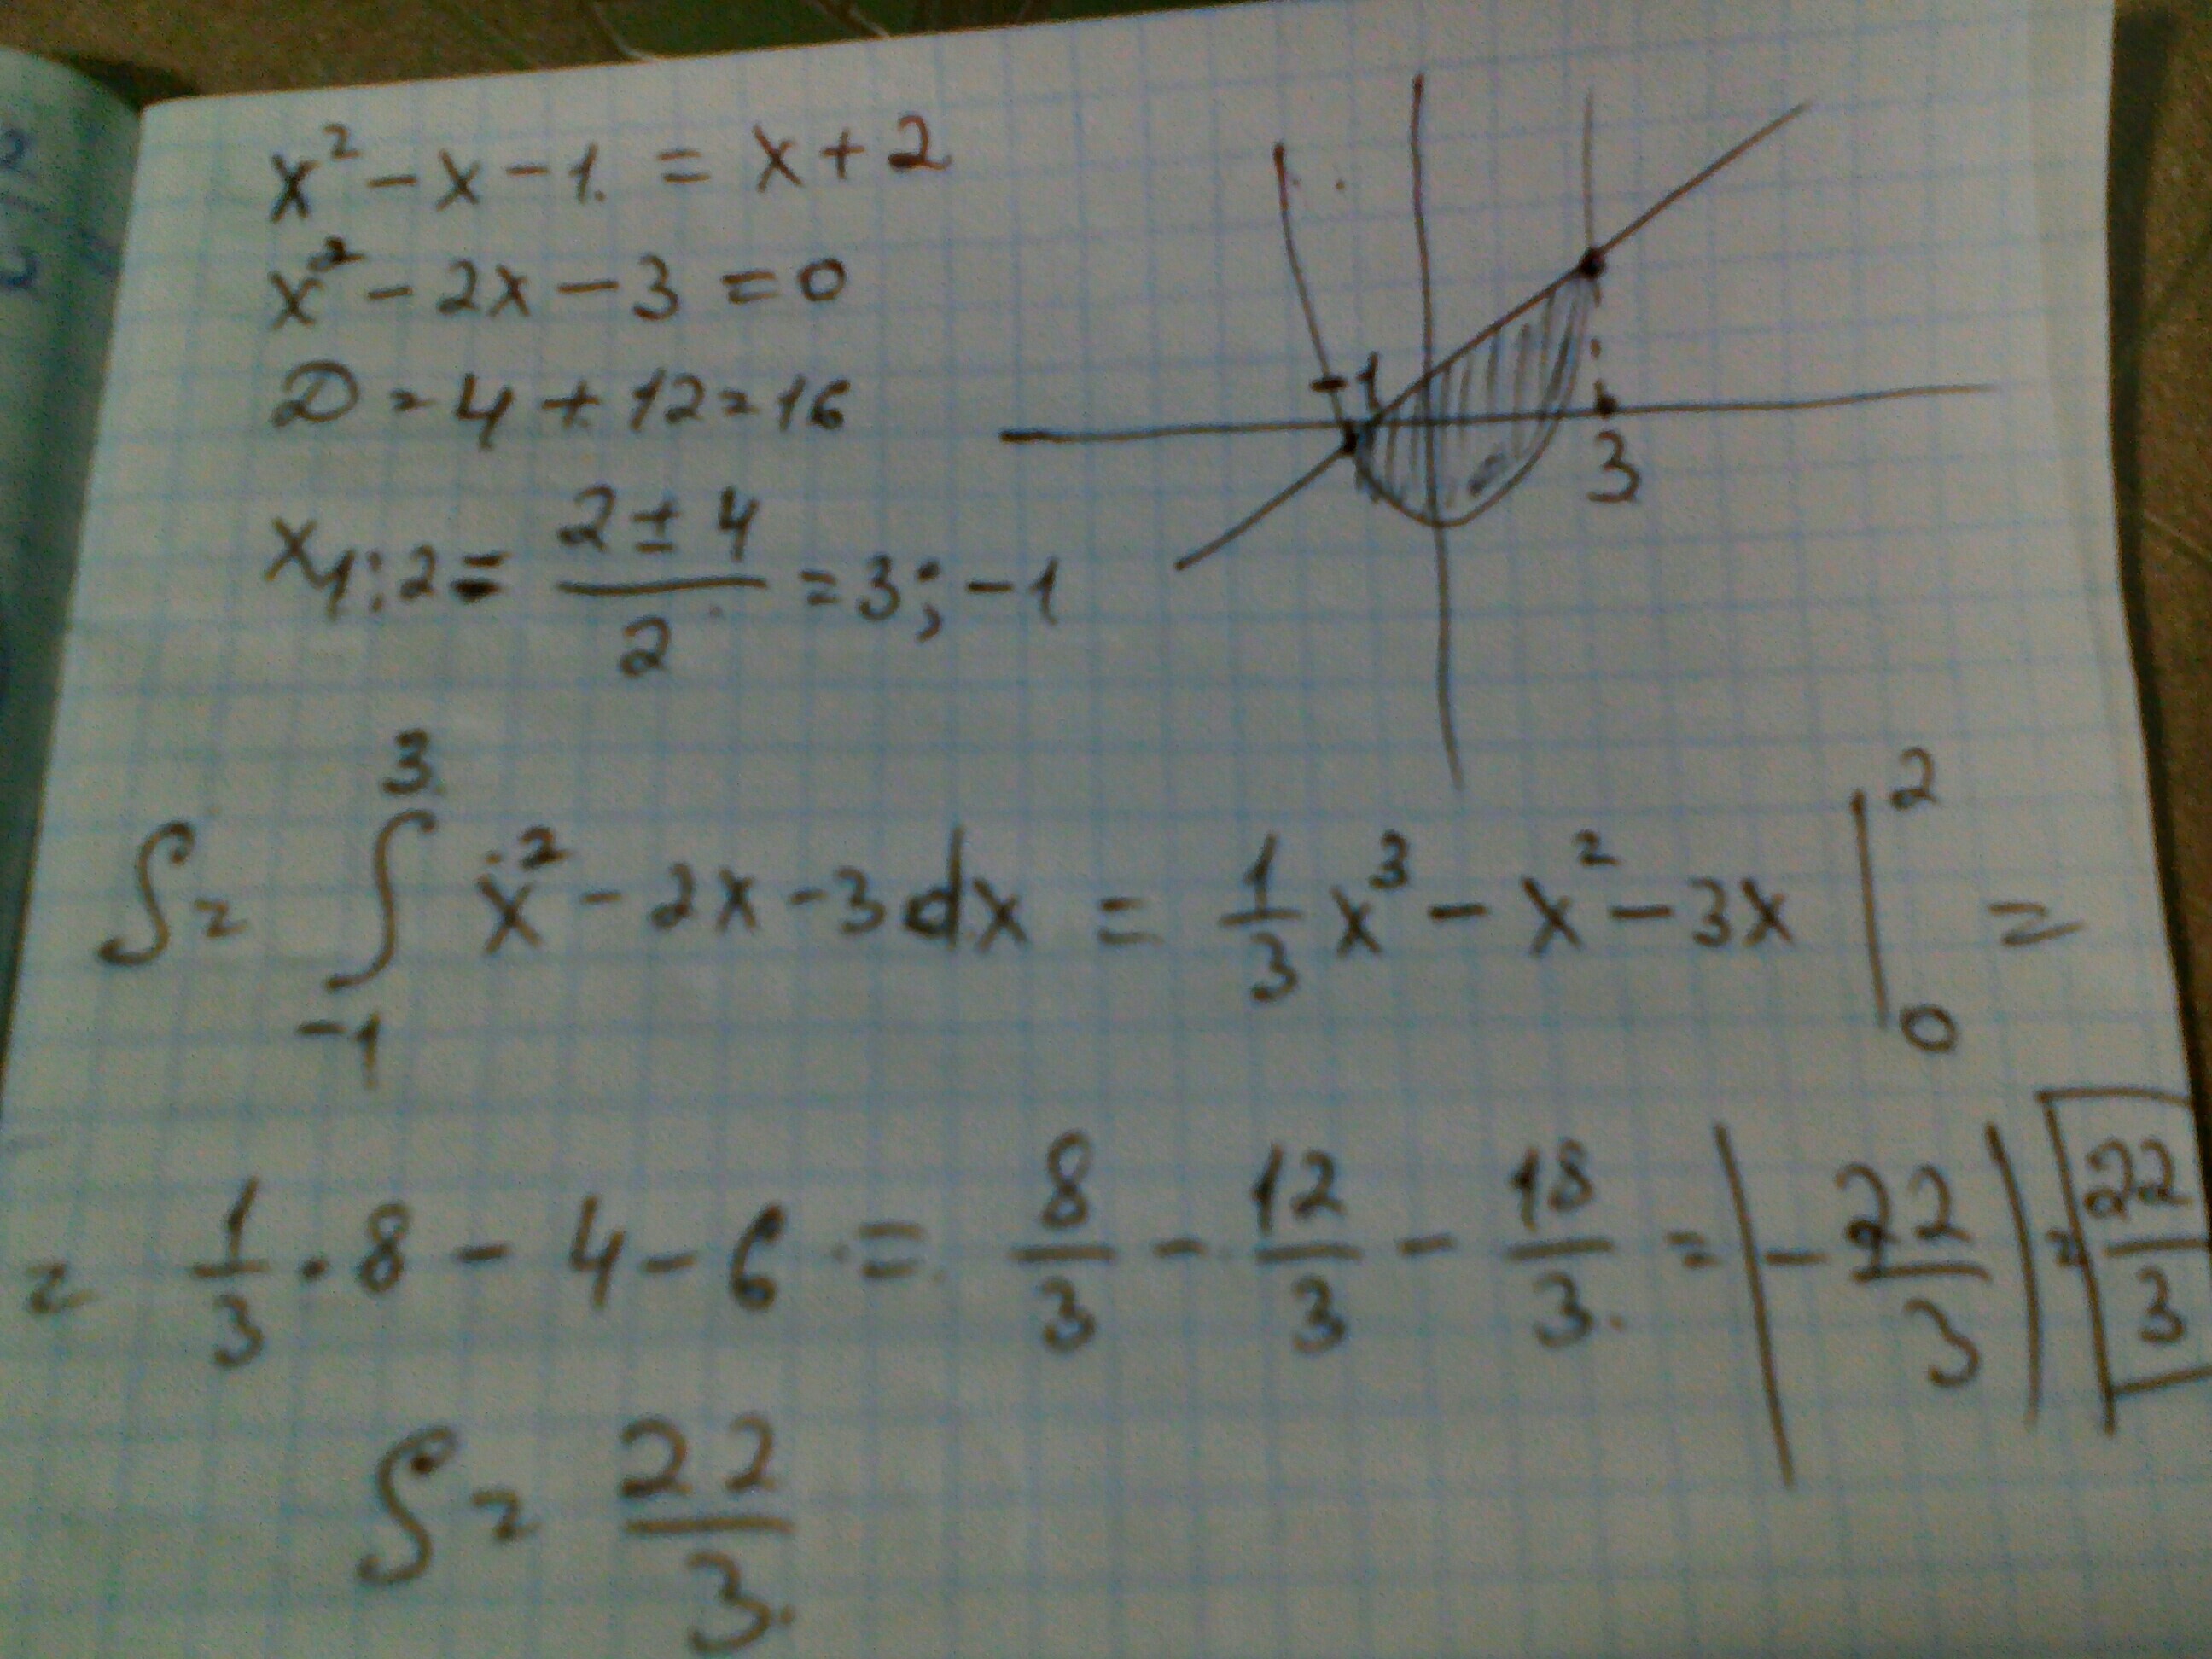 x² - x - 1 = x + 2
x² - 2x - 3 = 0
D = 4 + 12 = 16
x₁;₂ = (2 ± 4)/2 = 3; -1
-1
3
S = ∫₋₁³ x² - 2x - 3 dx = 1/3 x³ - x² - 3x |₀² =
= 1/3 · 8 - 4 - 6 = 8/3 - 12/3 - 18/3 = |-22/3| = 22/3
S = 22/3